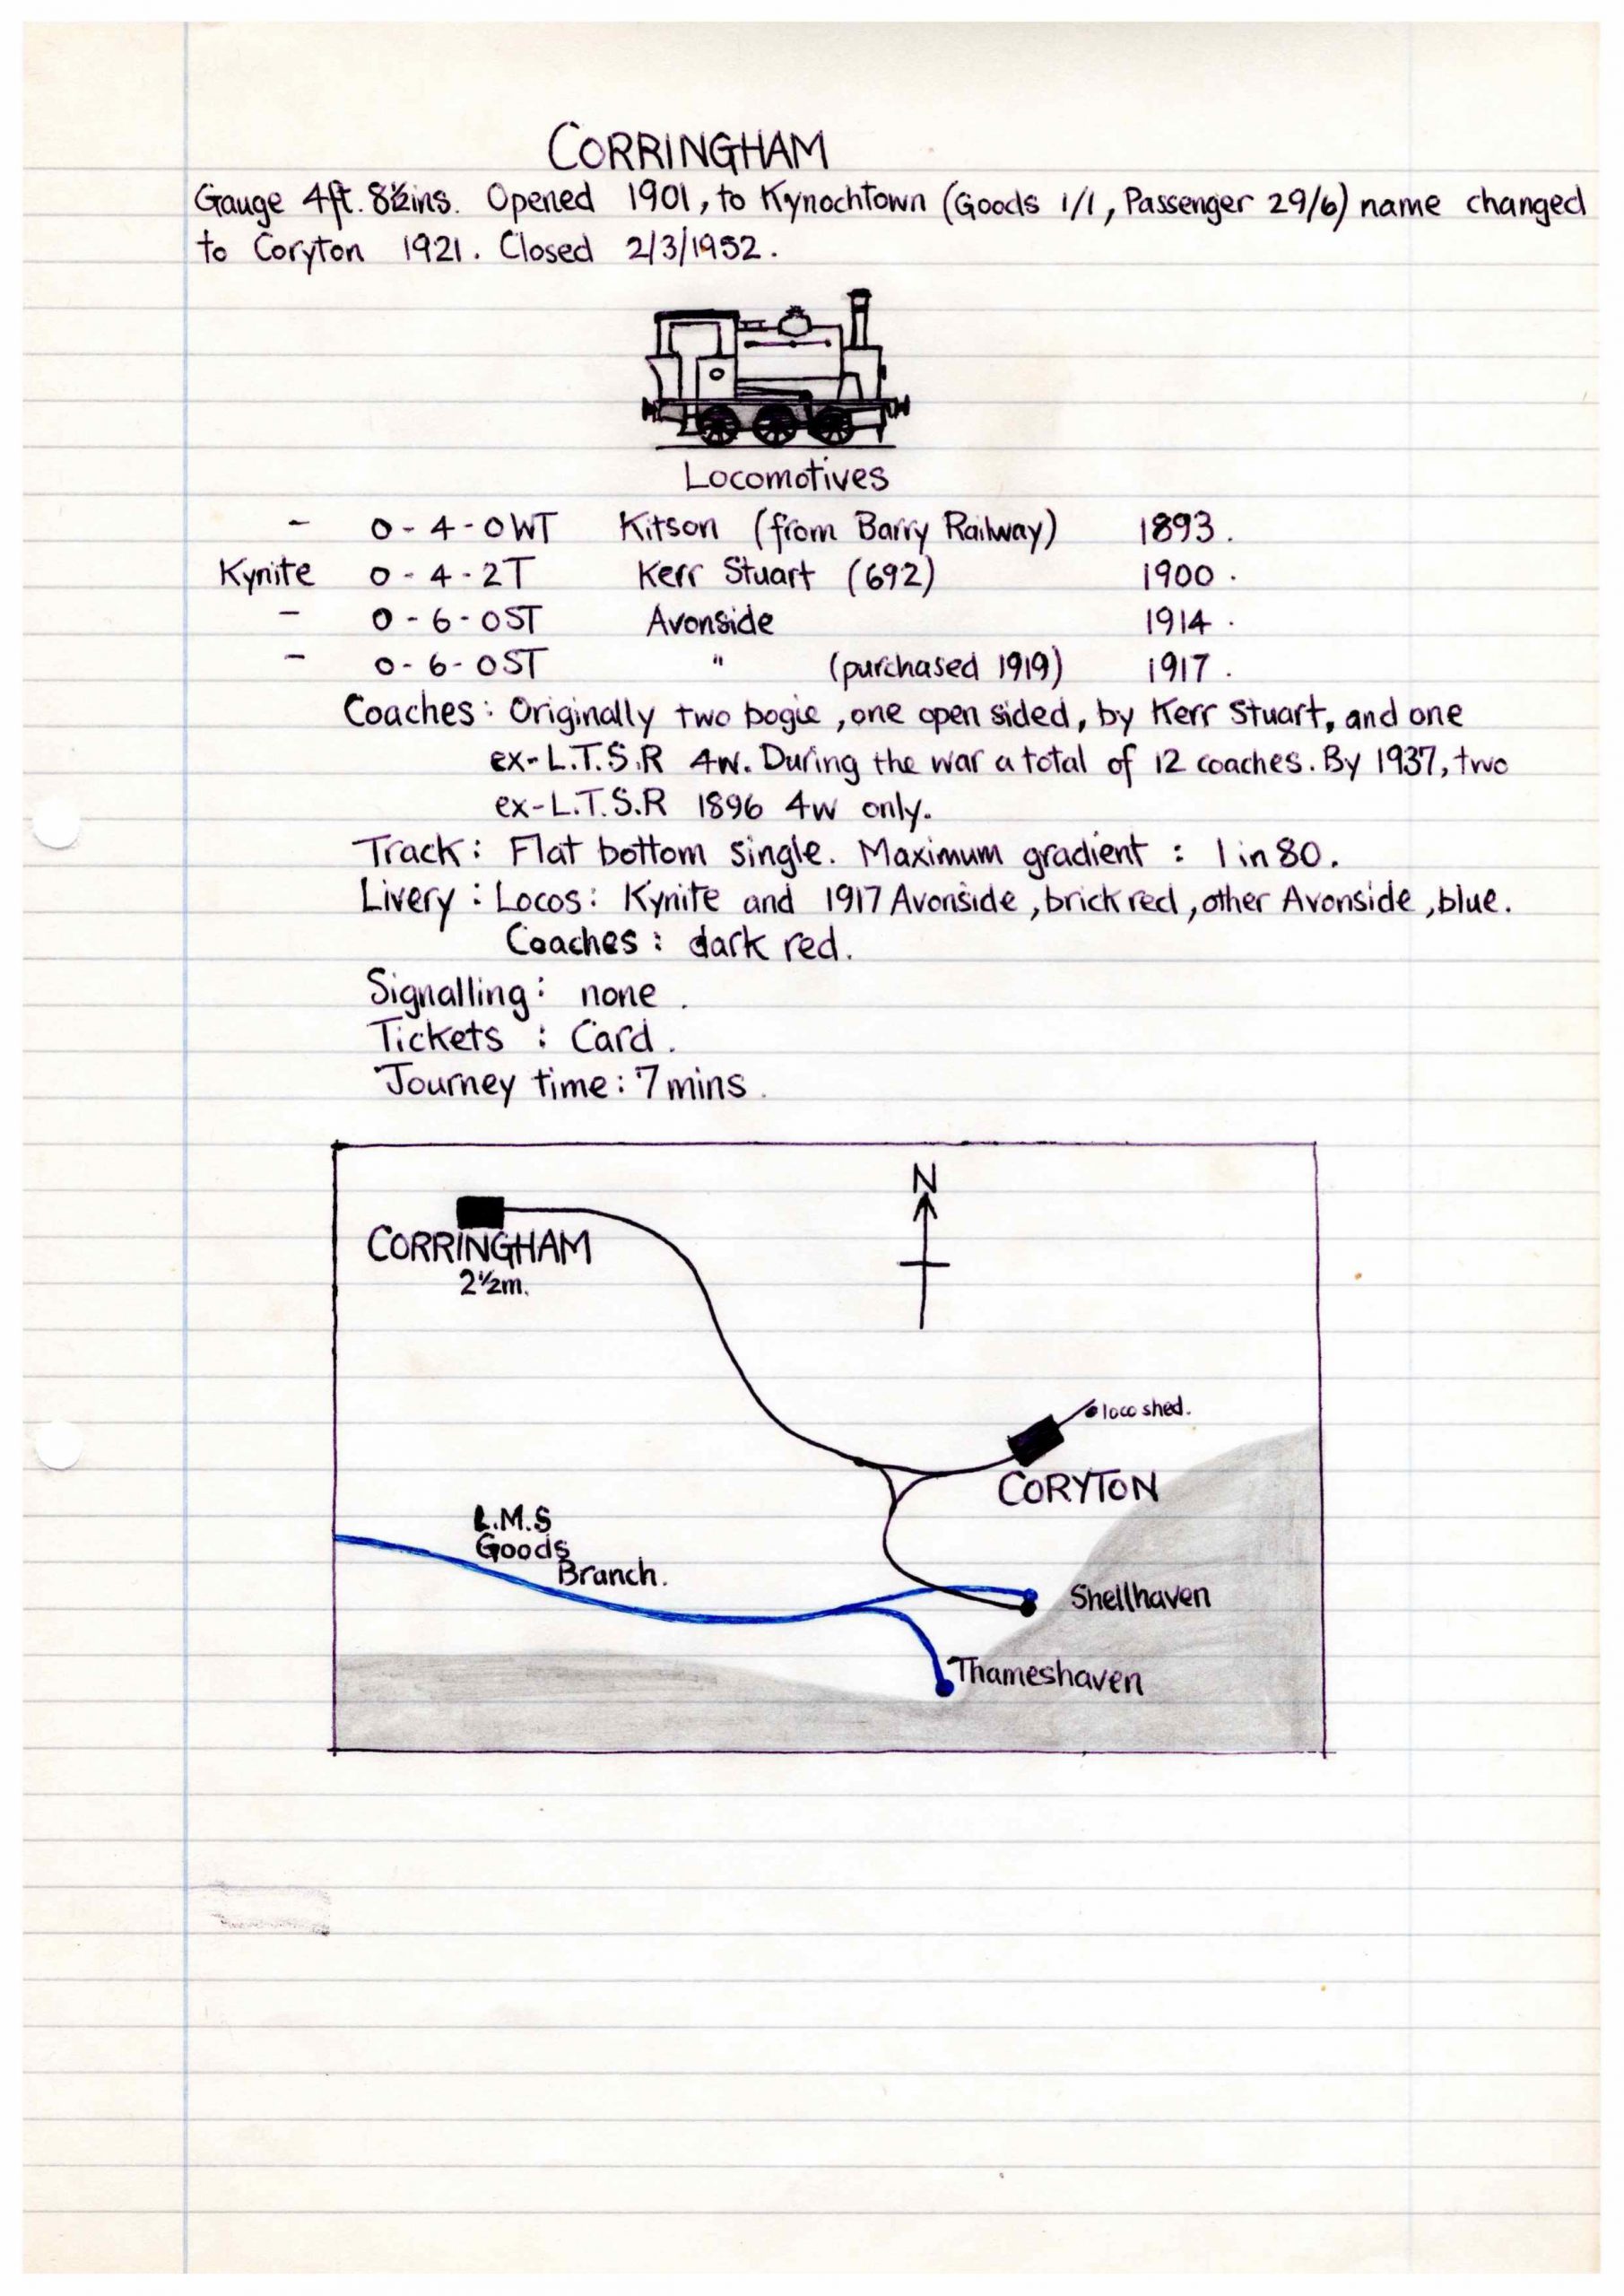 CORRINGHAM
Gauge 4ft. 8½ins. Opened 1901, to Kynochtown (Goods 1/1, Passenger 29/6) name changed
to Coryton 1921. Closed 2/3/1952.
Locomotives
- 0-4-0WT Kitson (from Barry Railway) 1893.
Kynite 0-4-2T Kerr Stuart (692) 1900.
- 0-6-0ST Avonside 1914.
- 0-6-0ST " (purchased 1919) 1917.
Coaches: Originally two bogie, one open sided, by Kerr Stuart, and one
ex-L.T.S.R 4w. During the war a total of 12 coaches. By 1937, two
ex-L.T.S.R 1896 4w only.
Track: Flat bottom single. Maximum gradient : 1 in 80.
Livery: Locos: Kynite and 1917 Avonside, brick red, other Avonside, blue.
Coaches: dark red.
Signalling: none.
Tickets : Card.
Journey time: 7 mins.
N
CORRINGHAM
2½m.
loco shed.
CORYTON
L.M.S
Goods
Branch.
Shellhaven
Thameshaven